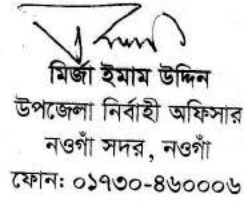 মির্জা ইমাম উদ্দিন
উপজেলা নির্বাহী অফিসার
নওগাঁ সদর, নওগাঁ
ফোন: ০১৭৩০-৪৬০০০৬